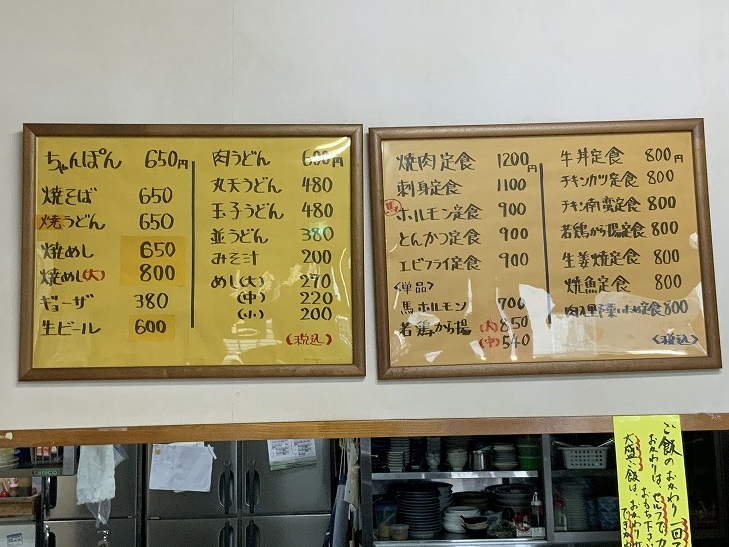 ちゃんぽん 650円
焼そば 650
焼うどん 650
焼めし 650
焼めし(大) 800
ギョーザ 380
生ビール 600
肉うどん 600円
丸天うどん 480
玉子うどん 480
並うどん 380
みそ汁 200
めし(大) 270
(中) 220
(小) 200
(税込)
焼肉定食 1200円
刺身定食 1100
ホルモン定食 900
とんかつ定食 900
エビフライ定食 900
<単品>
馬ホルモン 700
若鶏から揚 (大)850
(中)540
牛丼定食 800円
チキンカツ定食 800
チキン南蛮定食 800
若鶏から揚定食 800
生姜焼定食 800
焼魚定食 800
肉入野菜いため定食 800
<税込>
ご飯のおかわり一回
おかわりは、セルフで
おもち下さい
大盛ご飯は、おかわり